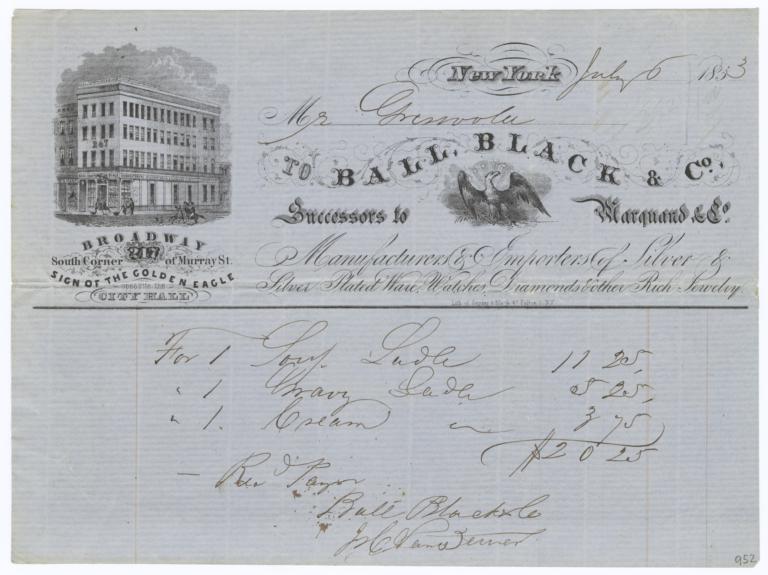 New York July 6 1853
Mr Griswold
TO BALL, BLACK & Co.
Successors to Marquand & Co.
Manufacturers & Importers of Silver &
Silver Plated Ware, Watches, Diamonds & other Rich Jewelry
247
BROADWAY
247
South Corner of Murray St.
SIGN OF THE GOLDEN EAGLE
opposite the
CITY HALL
For 1 Soup Ladle 11 25
" 1 Gravy Ladle 5 25
" 1. Cream " 3 75
$20 25
Recd Paym
Ball Black & Co
952